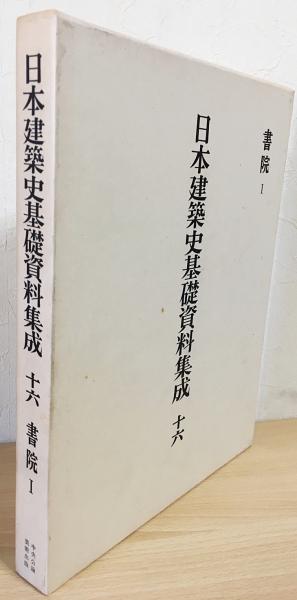 書院 I
日本建築史基礎資料集成 十六
日本建築史基礎資料集成 十六 書院 I
中央公論
美術出版